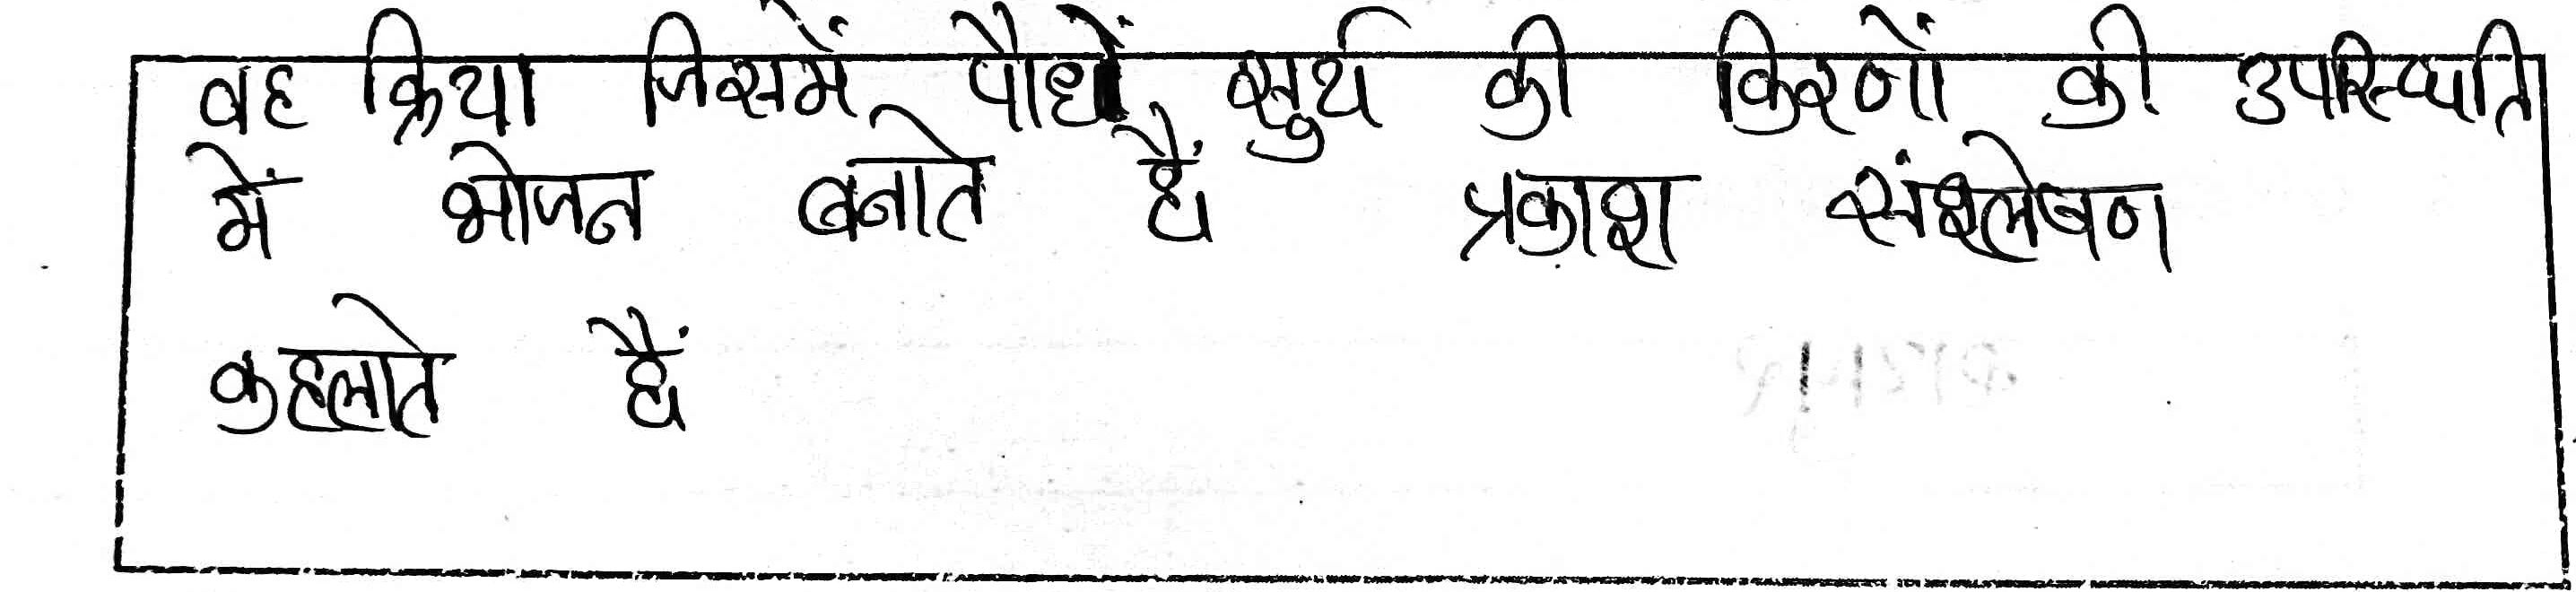 वह क्रिया जिसमें पौधें सुर्य की किरणों की उपस्थिति
में भोजन बनाते हैं प्रकाश संश्लेषण
कहलाते हैं